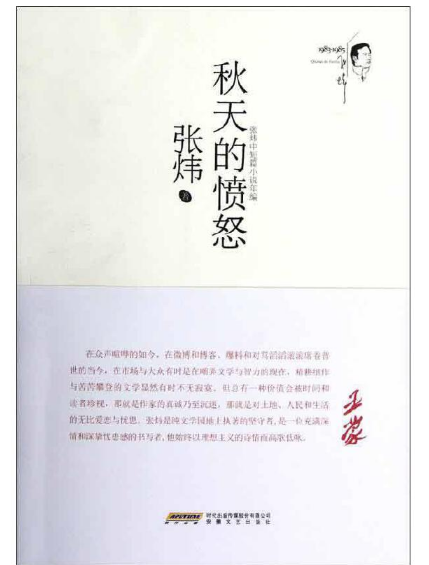 1983-1985
张炜
秋天的愤怒
张炜中短篇小说年编
张炜 著
在众声喧哗的如今,在微博和博客、爆料和对骂滔滔滚滚席卷普
世的当今,在市场与大众有时是在嘲弄文学与智力的现在,精耕细作
与苦苦攀登的文学显然有时不无寂寞。但总有一种价值会被时间和
读者珍视,那就是作家的真诚乃至沉迷,那就是对土地、人民和生活
的无比爱恋与忧思。张炜是纯文学园地上执著的坚守者,是一位充满深
情和深挚忧患感的书写者,他始终以理想主义的诗情而高歌低咏。
王蒙
时代出版传媒股份有限公司
安徽文艺出版社